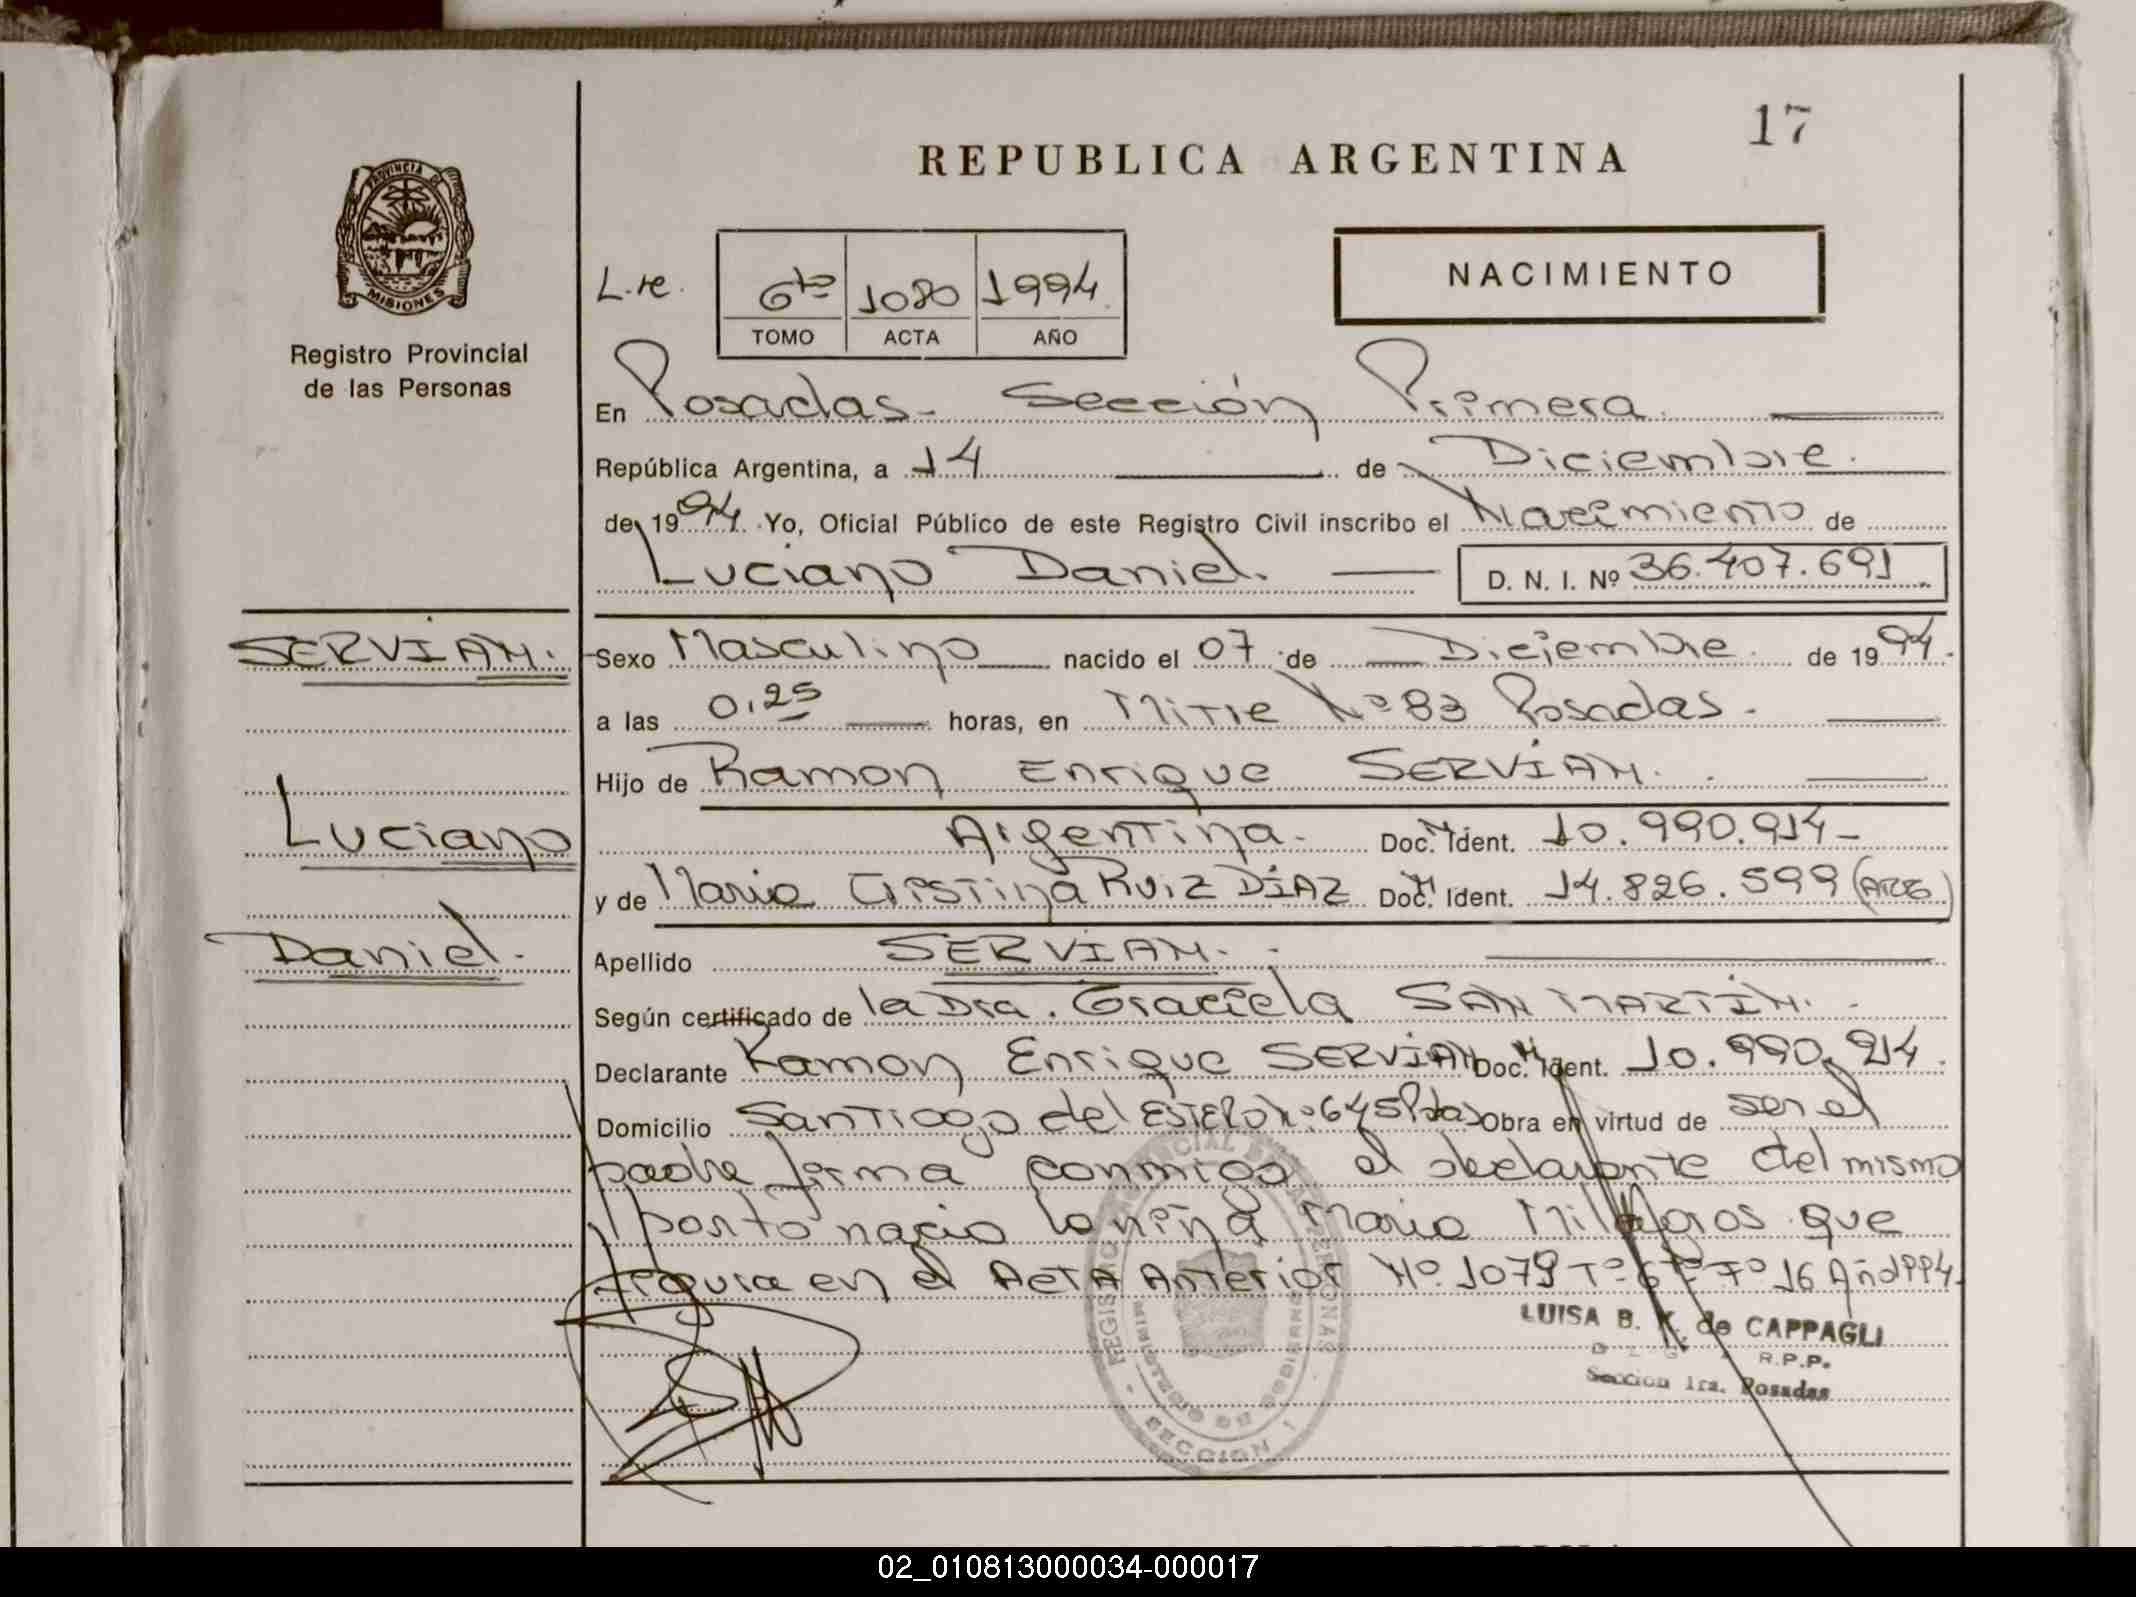 17
REPUBLICA ARGENTINA
PROVINCIA DE
MISIONES
Registro Provincial
de las Personas
6to 1080 1994
TOMO ACTA AÑO
NACIMIENTO
En Posadas - Sección Primera
República Argentina, a 14 de Diciembre.
de 1994 Yo, Oficial Público de este Registro Civil inscribo el Nacimiento de
Luciano Daniel. D. N. I. Nº 36.407.691
SERVIAN.
Luciano
Daniel.
Sexo Masculino nacido el 07 de Diciembre de 1994.
a las 0,25 horas, en Mitre Nº 83 Posadas.
Hijo de Ramon Enrique SERVIAN.
Argentina. Doc. Ident. 10.990.914
y de Maria Cristina RUIZ DÍAZ Doc. Ident. 14.826.599 (ARG)
Apellido SERVIAN.
Según certificado de la Dra. Graciela SAN MARTÍN.
Declarante Ramon Enrique SERVIAN Doc. Ident. 10.990.914.
Domicilio Santiago del ESTERO Nº 645 Pdas Obra en virtud de ser el
padre firma conmigo el declarante del mismo
parto nacio la niña Maria Milagros que
figura en el ACTA Anterior Nº 1079 Tº 6to Fº 16 Año 1994.
LUISA B. K. de CAPPAGLI
R.P.P.
Sección 1ra. Posadas
REGISTRO PROVINCIAL DE LAS PERSONAS
MINISTERIO DE GOBIERNO
SECCION 1
02_010813000034-000017